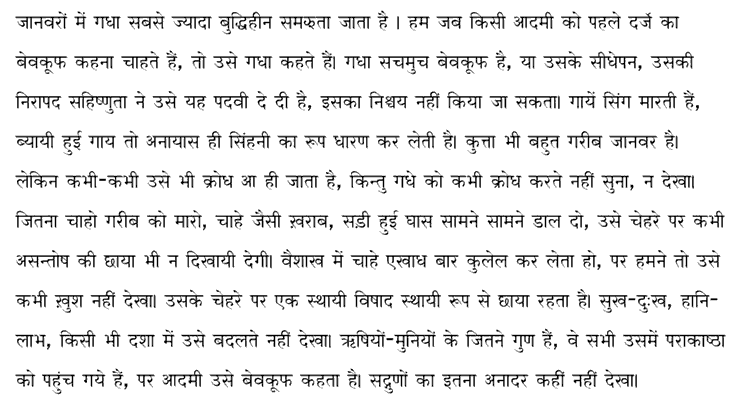 जानवरों में गधा सबसे ज्यादा बुद्धिहीन समझता जाता है । हम जब किसी आदमी को पहले दर्जे का
बेवकूफ कहना चाहते हैं, तो उसे गधा कहते हैं। गधा सचमुच बेवकूफ है, या उसके सीधेपन, उसकी
निरापद सहिष्णुता ने उसे यह पदवी दे दी है, इसका निश्चय नहीं किया जा सकता। गायें सिंग मारती हैं,
ब्यायी हुई गाय तो अनायास ही सिंहनी का रूप धारण कर लेती है। कुत्ता भी बहुत गरीब जानवर है।
लेकिन कभी-कभी उसे भी क्रोध आ ही जाता है, किन्तु गधे को कभी क्रोध करते नहीं सुना, न देखा।
जितना चाहो गरीब को मारो, चाहे जैसी ख़राब, सड़ी हुई घास सामने सामने डाल दो, उसे चेहरे पर कभी
असन्तोष की छाया भी न दिखायी देगी। वैशाख में चाहे एखाध बार कुलेल कर लेता हो, पर हमने तो उसे
कभी ख़ुश नहीं देखा। उसके चेहरे पर एक स्थायी विषाद स्थायी रूप से छाया रहता है। सुख-दुःख, हानि-
लाभ, किसी भी दशा में उसे बदलते नहीं देखा। ऋषियों-मुनियों के जितने गुण हैं, वे सभी उसमें पराकाष्ठा
को पहुंच गये हैं, पर आदमी उसे बेवकूफ कहता है। सद्गुणों का इतना अनादर कहीं नहीं देखा।